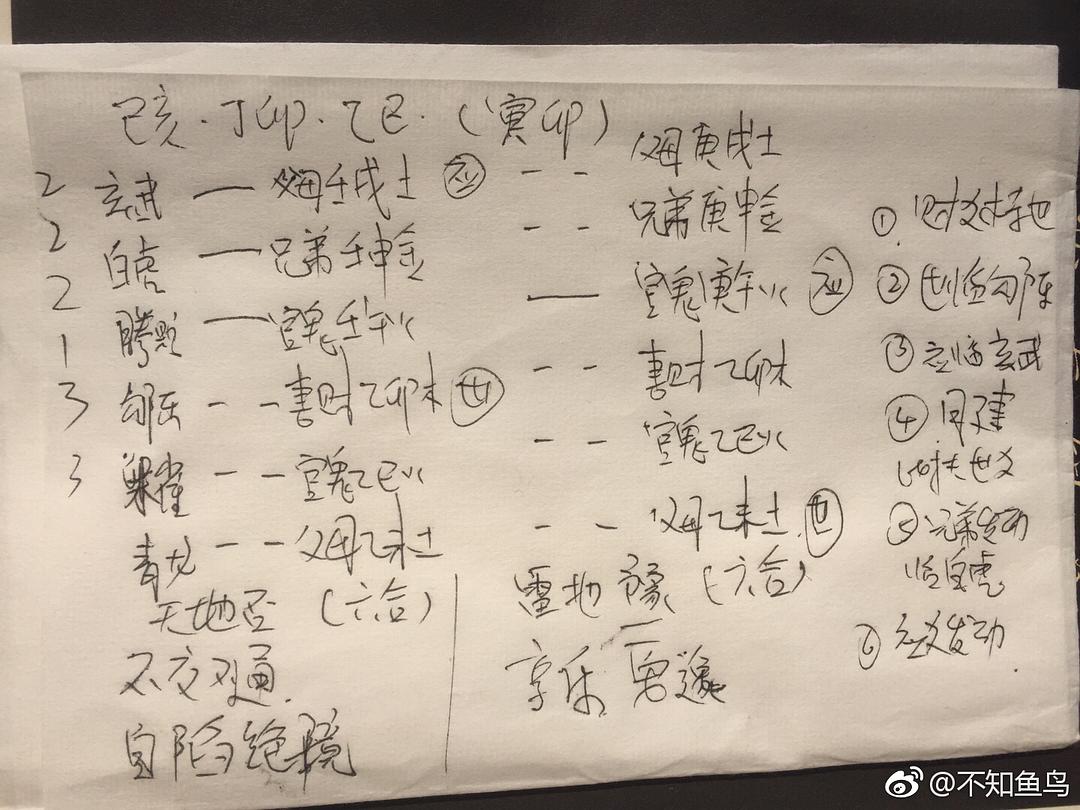 己亥.丁卯.乙巳.(寅卯)
2 玄武 父母壬戌土 应 父母庚戌土
2 白虎 兄弟壬申金 兄弟庚申金
2 官鬼壬午火 官鬼庚午火 应
1 勾陈 妻财乙卯木 世 妻财乙卯木
3 朱雀 官鬼乙巳火 官鬼乙巳火
3 青龙 父母乙未土 父母乙未土 世
天地否(六合)
不交不通.
自陷绝境
雷地豫(六合)
享乐 安逸
① 财爻持世
② 世临勾陈
③ 应临玄武
④ 月建
世爻
⑤ 兄弟发动
临白虎
⑥ 应爻发动.
@不知鱼鸟